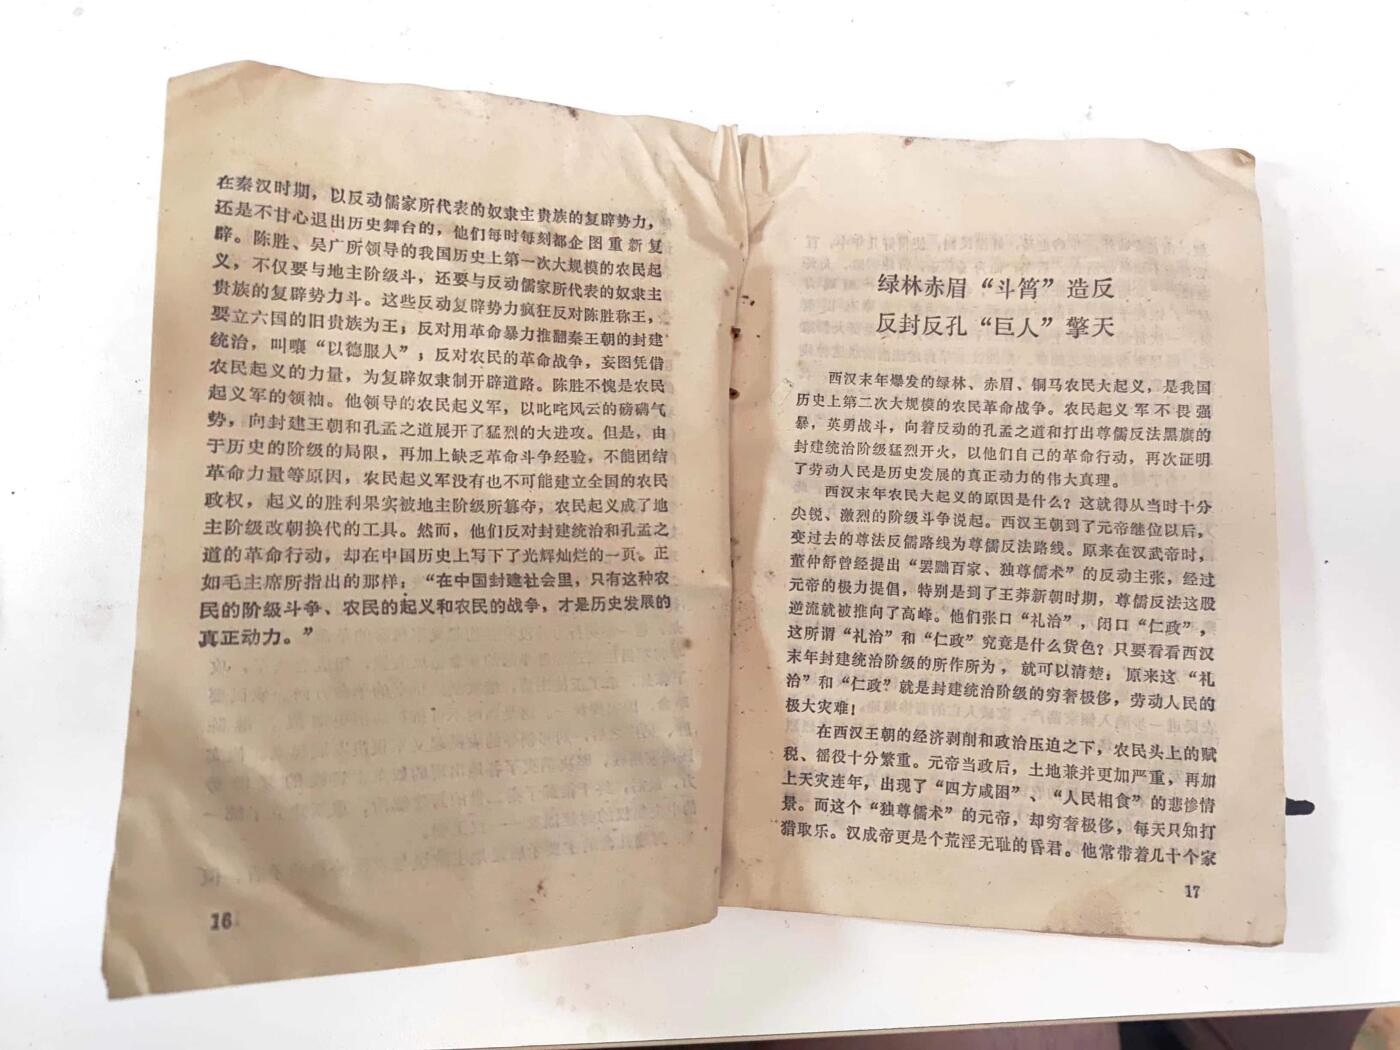 在秦汉时期，以反动儒家所代表的奴隶主贵族的复辟势力，
还是不甘心退出历史舞台的，他们每时每刻都企图重新复
辟。陈胜、吴广所领导的我国历史上第一次大规模的农民起
义，不仅要与地主阶级斗，还要与反动儒家所代表的奴隶主
贵族的复辟势力斗。这些反动复辟势力疯狂反对陈胜称王，
要立六国的旧贵族为王；反对用革命暴力推翻秦王朝的封建
统治，叫嚷“以德服人”；反对农民的革命战争，妄图凭借
农民起义的力量，为复辟奴隶制开辟道路。陈胜不愧是农民
起义军的领袖。他领导的农民起义军，以叱咤风云的磅礴气
势，向封建王朝和孔孟之道展开了猛烈的大进攻。但是，由
于历史的阶级的局限，再加上缺乏革命斗争经验，不能团结
革命力量等原因，农民起义军没有也不可能建立全国的农民
政权，起义的胜利果实被地主阶级所篡夺，农民起义成了地
主阶级改朝换代的工具。然而，他们反对封建统治和孔孟之
道的革命行动，却在中国历史上写下了光辉灿烂的一页。正
如毛主席所指出的那样：“在中国封建社会里，只有这种农
民的阶级斗争、农民的起义和农民的战争，才是历史发展的
真正动力。”
16
绿林赤眉“斗筲”造反
反封反孔“巨人”擎天
西汉末年爆发的绿林、赤眉、铜马农民大起义，是我国
历史上第二次大规模的农民革命战争。农民起义军不畏强
暴，英勇战斗，向着反动的孔孟之道和打出尊儒反法黑旗的
封建统治阶级猛烈开火，以他们自己的革命行动，再次证明
了劳动人民是历史发展的真正动力的伟大真理。
西汉末年农民大起义的原因是什么？这就得从当时十分
尖锐、激烈的阶级斗争说起。西汉王朝到了元帝继位以后，
变过去的尊法反儒路线为尊儒反法路线。原来在汉武帝时，
董仲舒曾经提出“罢黜百家、独尊儒术”的反动主张，经过
元帝的极力提倡，特别是到了王莽新朝时期，尊儒反法这股
逆流就被推向了高峰。他们张口“礼治”，闭口“仁政”，
这所谓“礼治”和“仁政”究竟是什么货色？只要看看西汉
末年封建统治阶级的所作所为，就可以清楚：原来这“礼
治”和“仁政”就是封建统治阶级的穷奢极侈，劳动人民的
极大灾难！
在西汉王朝的经济剥削和政治压迫之下，农民头上的赋
税、徭役十分繁重。元帝当政后，土地兼并更加严重，再加
上天灾连年，出现了“四方咸困”、“人民相食”的悲惨情
景。而这个“独尊儒术”的元帝，却穷奢极侈，每天只知打
猎取乐。汉成帝更是个荒淫无耻的昏君。他常带着几十个家
17